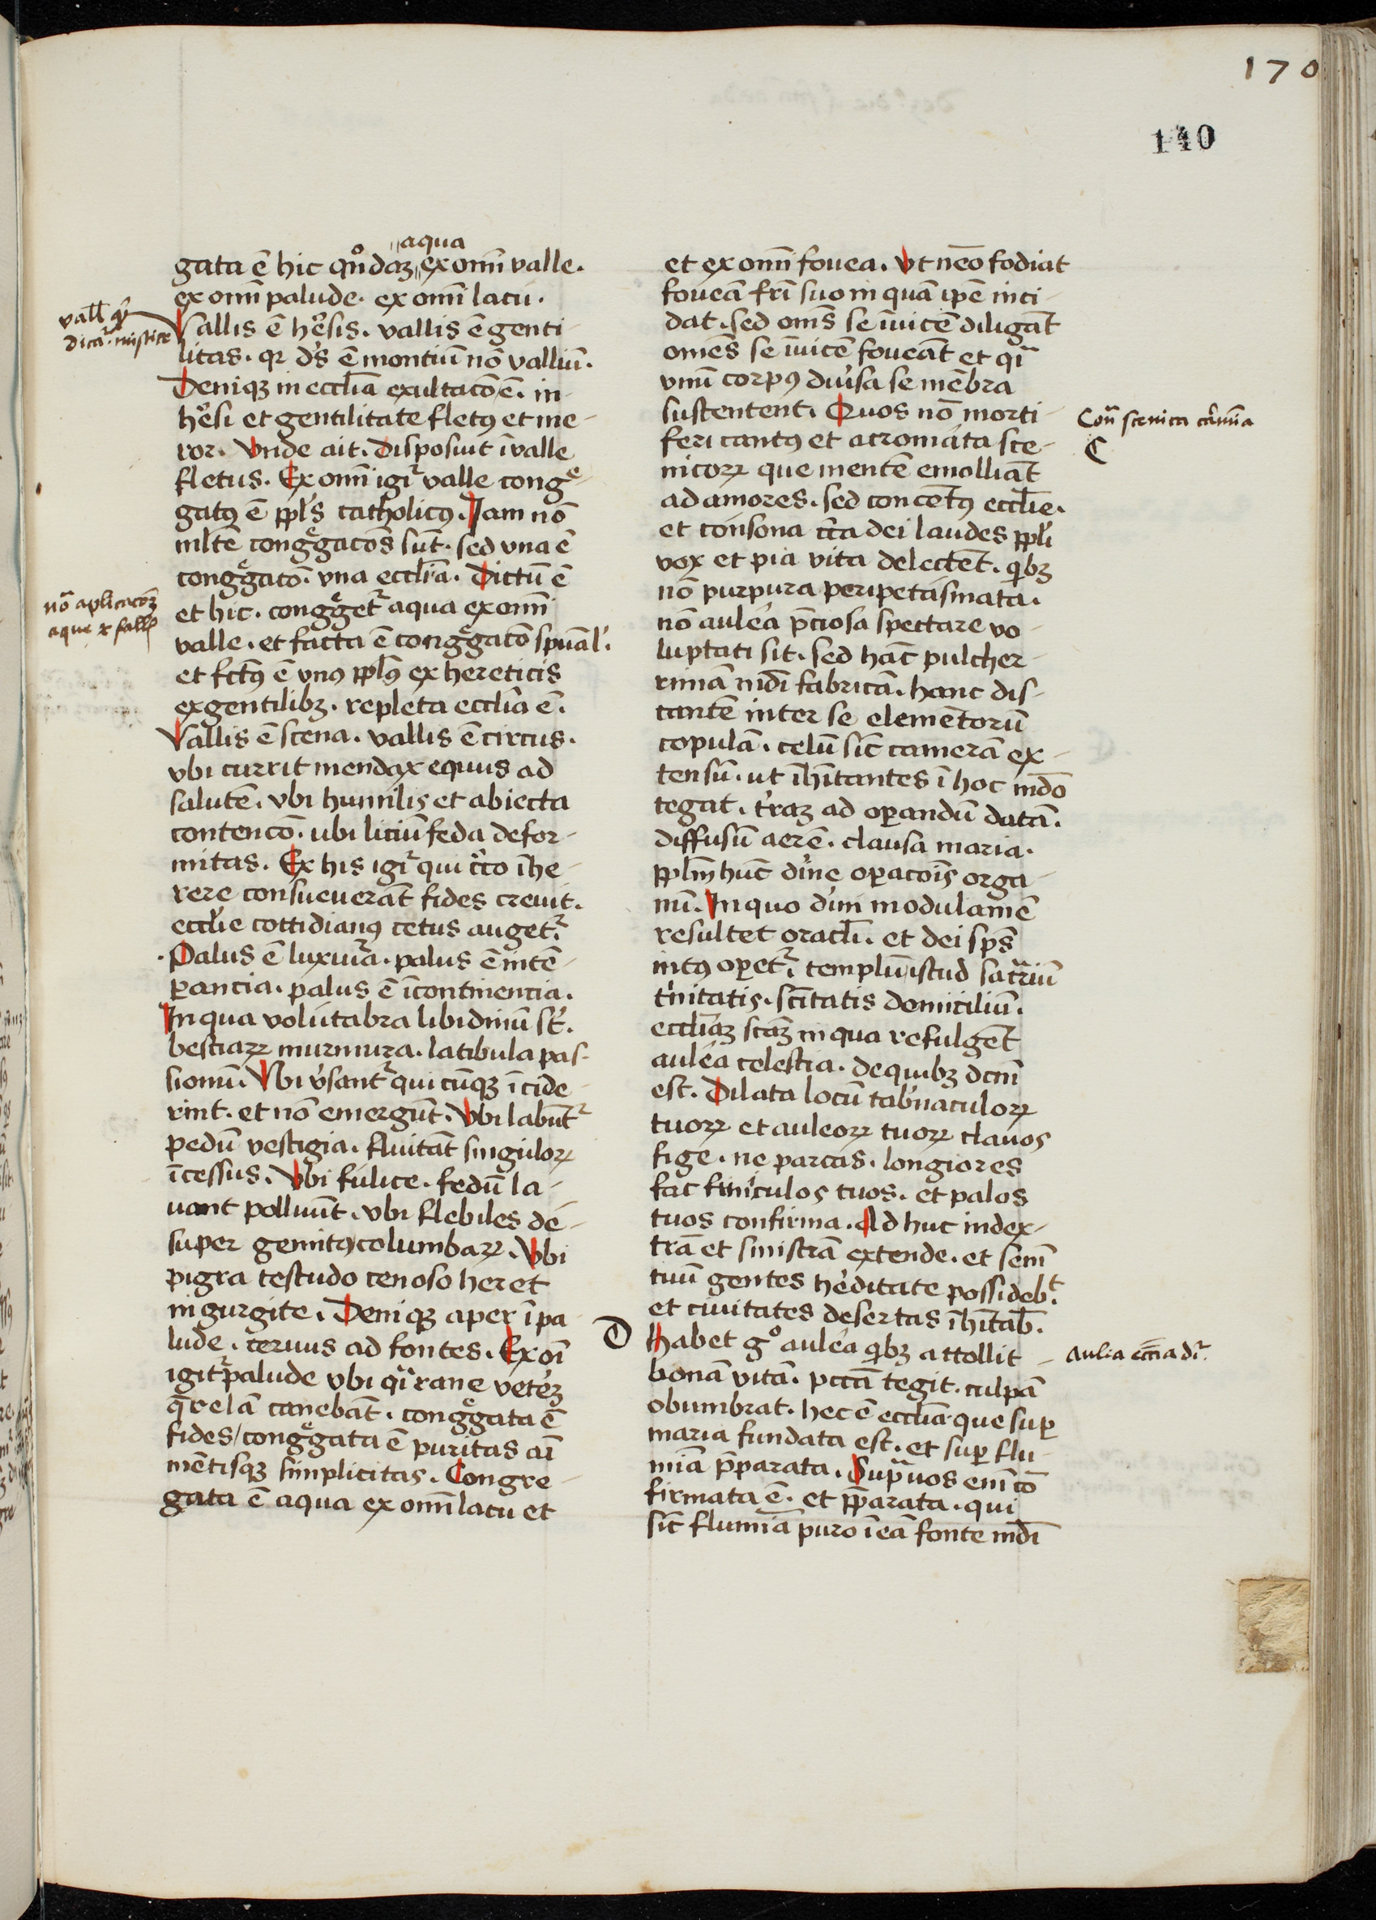 170
140
aqua
gata ē hic qn̊daꝫ ex omī valle.
ex omī palude. ex omī lacu.
Vallis ē hēsis. vallis ē genti-
litas. qꝛ ds̄ ē montiū nō valliū.
Deniqꝫ in eccīa exultacō ē. in
hēsi et gentilitate fletꝰ et me-
ror. Vnde ait. Disposuit ī valle
fletus. Ex omī igr̄ valle congͤ-
gatꝰ ē ppl̄s catholicꝰ. Jam nō
mlte congg̃acōs sūt. sed vna ē
congg̃acō. vna eccīa. Dictū ē
et hic. congg̃etr̄ aqua ex omī
valle. et facta ē congg̃acō spūal̄.
et fctꝰ ē vnꝰ ppl̄ꝰ ex hereticis
ex gentilibꝫ. repleta eccīa ē.
Vallis ē scena. vallis ē circus.
vbi currit mendax equus ad
salutē. vbi humilis et abiecta
contencō. ubi liciū feda defor-
mitas. Ex his igr̄ qui cͥco īhe-
rere consueverāt fides crevit.
eccīe cottidianꝰ cetus augetr̄
Palus ē luxuria. palus ē intē-
ꝑancia. palus ē īcontinencia.
In qua volutabra libidinū st̄.
bestiaꝝ murmura. latibula pas-
sionū. Vbi v̄santr̄ qui cūqꝫ īcide-
rint. et nō emergūt. Vbi labūtr̄
pedū vestigia. fluitāt singuloꝝ
īcessus. Vbi fulice. fedū la-
uant polluūt. vbi flebiles de-
super gemitꝰ columbaꝝ. Vbi
pigra testudo cenoso heret
in gurgite. Deniqꝫ aper ī pa
lude. cervus ad fontes. Ex oī
igitr̄ palude vbi qͣi rane veterꝫ
q̄relā canebāt. congg̃ata ē
fides/ congg̃ata ē puritas aī
mētisqꝫ simplicitas. Congre-
gata ē aqua ex omī lacu et
vall̄ qͥ
dicar̄ mistice
nō aplicacōꝫ
aque
et ex omī fovea. Vt nēo fodiat
foveā frī suo in quā ipē inci-
dat. sed oms̄ se īuicē diligāt
omēs se īuicē foveāt et qͣ
vnū corpꝰ diūsa se mēbra
sustentent. Quos nō morti-
feri cantꝰ et acromata sce-
nicoꝝ que mentē emolliāt
ad amores. sed concētꝰ eccīe.
et consona cͥca dei laudes ppl̄i
vox et pia vita delectēt. qͥbꝫ
nō purpura peripetasmata.
nō aulea p̄ciosa spectare vo-
luptati sit. sed hāc pulcher-
rimā mdī fabricā. hanc dis-
tantē inter se elemētorū
copulā. celū sic̄ camerā ex-
tensū. ut īhītantes ī hoc mdō
tegat. tr̄aꝫ ad oꝑandū datā.
diffusū aerē. clausa maria.
ppl̄m hūc dīne oꝑacōis orga-
nū. In quo dīm modulamē
resultet oracl̄i. et dei sps̄
intꝰ oꝑetr̄. templū istud sacrariū
tͥnitatis. scītatis domiciliū.
eccīaꝫ scāꝫ in qua refulgēt
aulea celestia. de quibꝫ dcm̄
est. Dilata locū tabn̄aculoꝝ
tuoꝝ et auleoꝝ tuoꝝ clauos
fige. ne parcas. longiores
fac funiculos tuos. et palos
tuos confirma. Ad huc in dex-
trā et sinistrā extende. et semē
tuū gentes hēditate possideb.ᵗ
et civitates desertas īhītab̄.
Habet gͦ aulea qͥbꝫ attollit
bonā vitā. pccā tegit. culpā
obumbrat. hec ē eccīa que suꝑ
maria fundata est. et suꝑ flu-
mīa p̄parata. Supͣ vos em̄ cō
firmata ē. et p̄parata. qui
sic̄ flumīa puro ī eā fonte mdī
Conͣ scenica carmīa
C
D
Aulea eccīa dr̄.